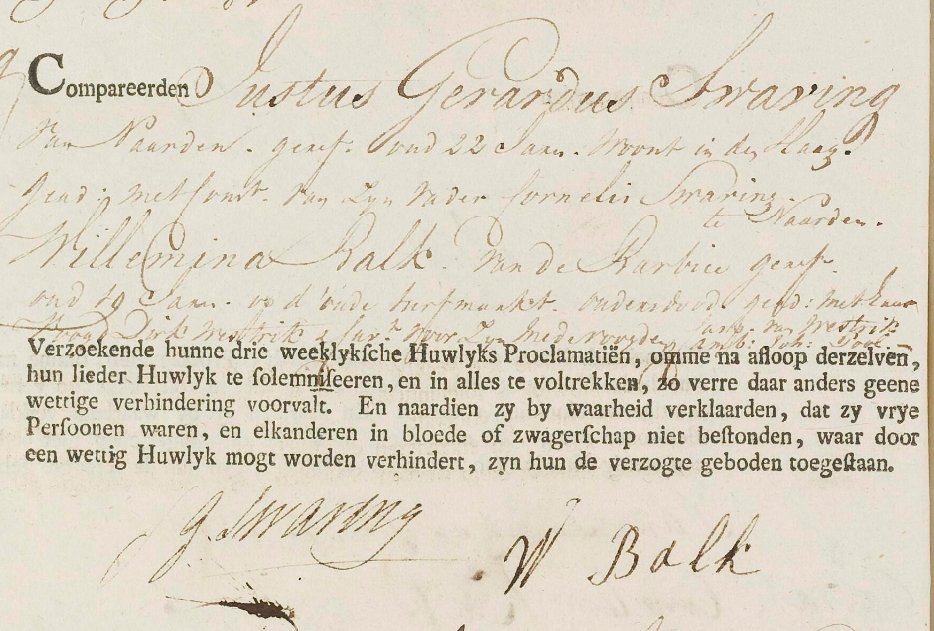 Compareerden Justus Gerardus Swaving
van Naarden. geref: oud 22 Jaar. Woont in den Haag.
gead: met Cons:t van Zyn Vader Cornelis Swaving.
te Naarden.
Willemina Balk. van de Barbice geref:
oud 19 Jaar. op d'oude turfmarkt. ouders dood. gead: met haar
Voogd Dirk Westrik
Verzoekende hunne drie weeklyksche Huwlyks Proclamatiën, omme na afloop derzelven,
hun lieder Huwlyk te solemniseeren, en in alles te voltrekken, zo verre daar anders geene
wettige verhindering voorvalt. En naardien zy by waarheid verklaarden, dat zy vrye
Persoonen waren, en elkanderen in bloede of zwagerschap niet bestonden, waar door
een wettig Huwlyk mogt worden verhindert, zyn hun de verzogte geboden toegestaan.
J G. Swaving
W Balk